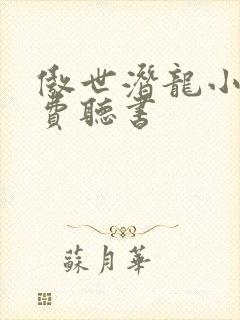 傲世潛龍小
費聽書
蘇月華